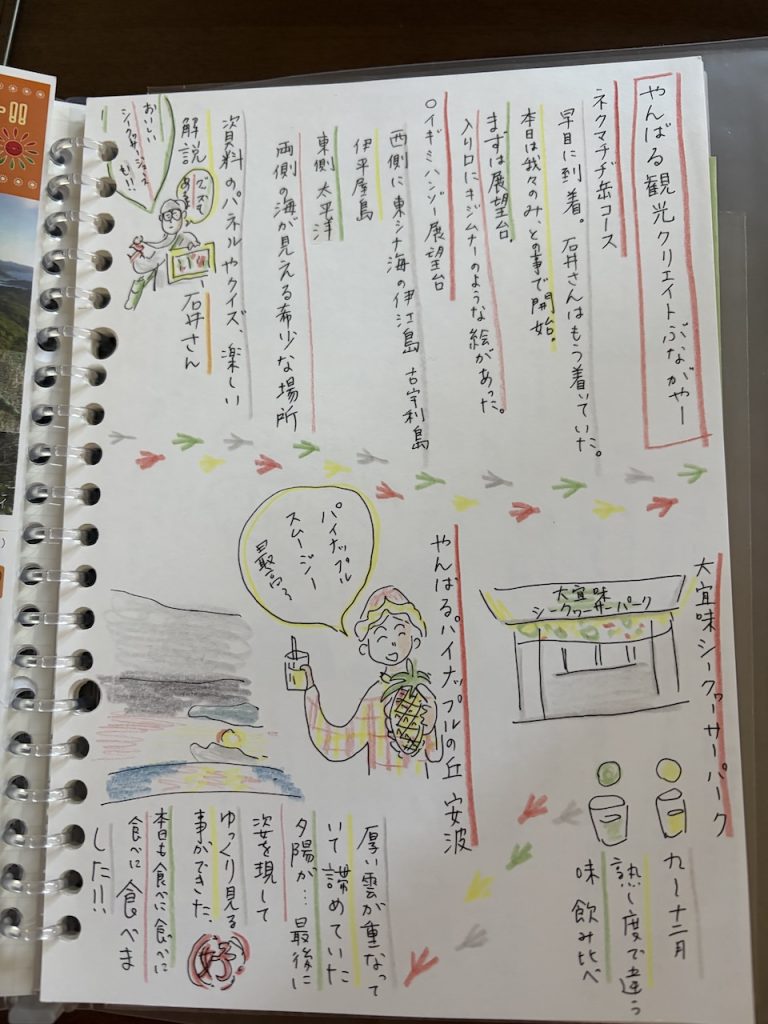 やんばる観光クリエイトぶながやー
ネクマチヂ岳コース
早目に到着。石井さんはもう着いていた。
本日は我々のみ、との事で開始。
まずは展望台。
入り口にキジムナーのような絵があった。
○イギミハンゾー展望台
西側に東シナ海の伊江島 古宇利島
伊平屋島
東側 太平洋
両側の海が見える希少な場所
資料のパネルやクイズ、楽しい
解説 石井さん
クイズも
あるよ
おいしい
シークワーサージュース
も!!
大宜味シークヮーサーパーク
大宜味
シークヮーサーパーク
九〜十二月
熟し度で違う
味 飲み比べ
やんばるパイナップルの丘 安波
パイナップル
スムージー
最高〜
厚い雲が重なって
いて諦めていた
夕陽が…最後に
姿を現して
ゆっくり見る
事ができた。
本日も食べに食べに
食べに食べま
した!!